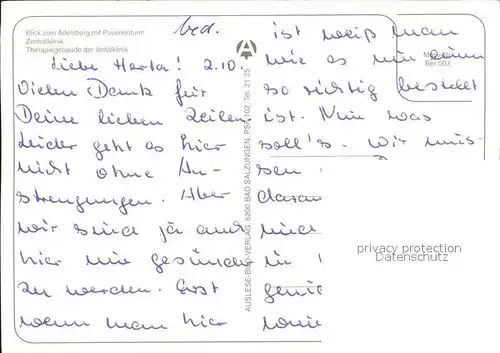 Blick zum Adelsberg mit Pausnenturm
Zentralklinik
Therapiegebäude der Ilmtalklinik
bed.
Liebe Herta! 2.10.
Vielen Dank für
Deine lieben Zeilen.
Leider geht es hier
nicht ohne An-
strengungen. Aber
wir sind ja auch
hier um gesünder
zu werden. Erst
wenn man hier
AUSLESE-BILD-VERLAG, 6200 BAD SALZUNGEN, PSF 102, Tel. 21 25
ist weiß man
wie es um einen
so richtig bestellt
ist. Nun was
soll's. Wir müs-
sen
daran
und
in
Ber 003
privacy protection
Datenschutz